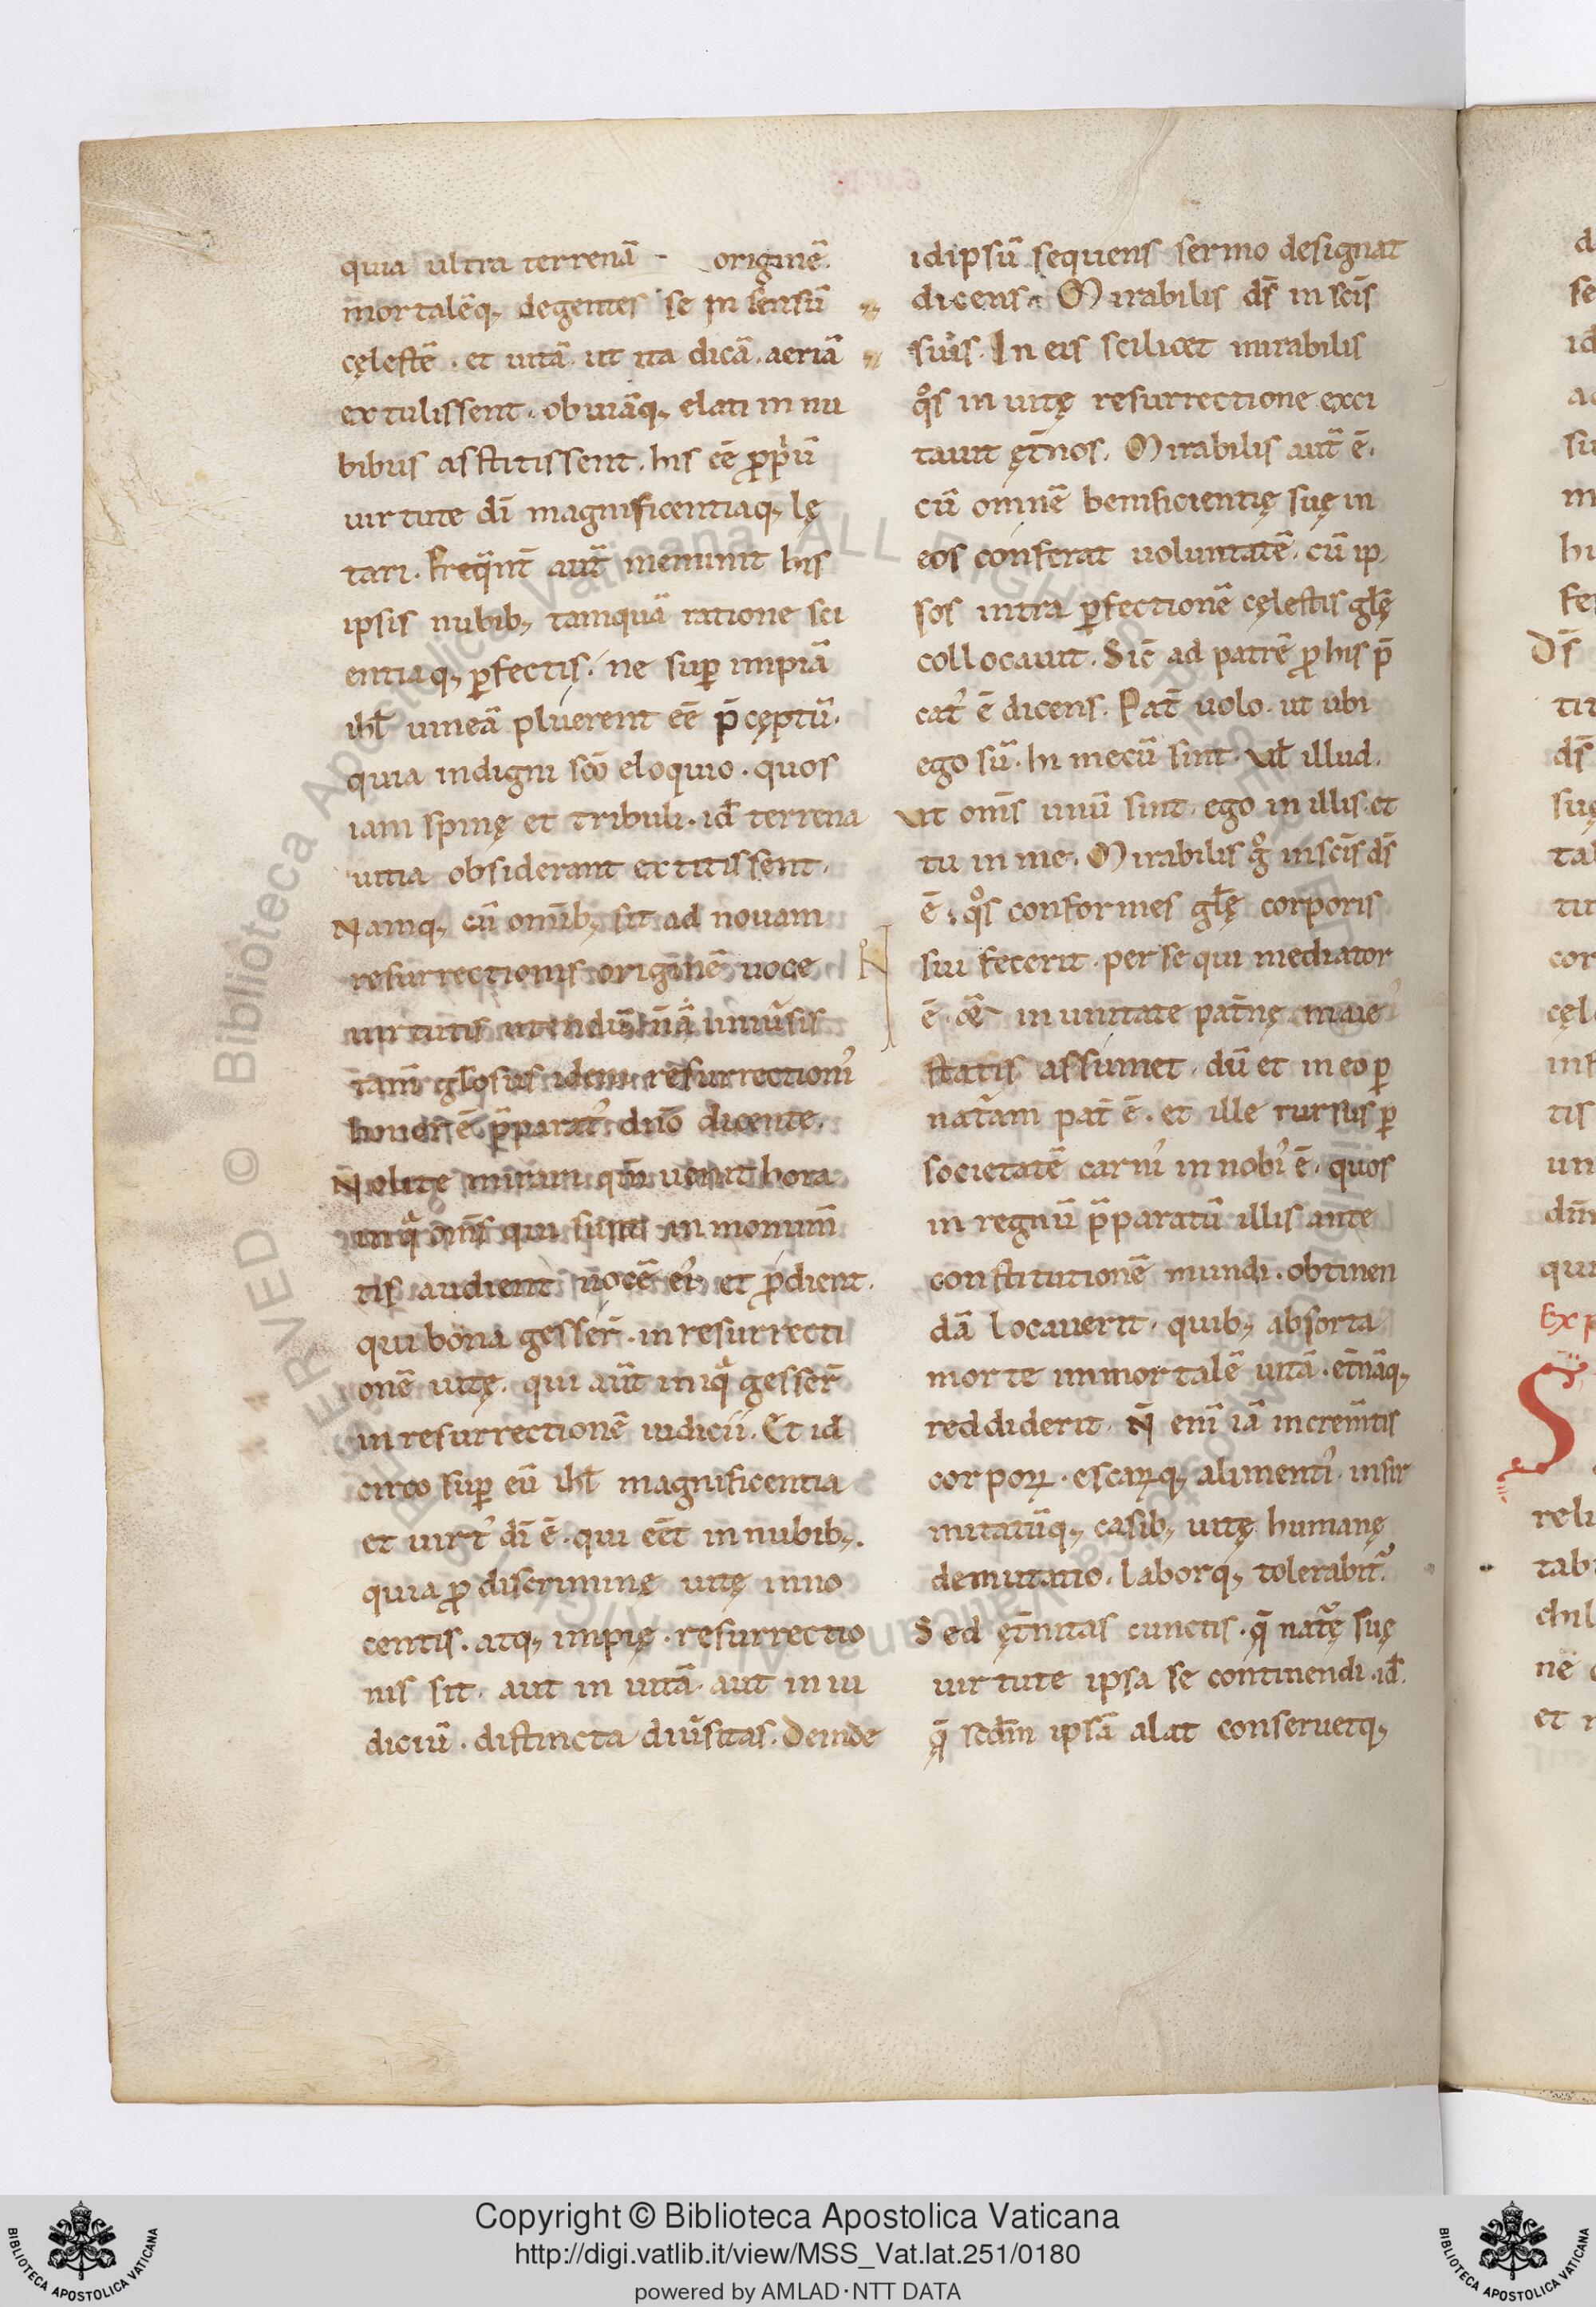 quia ultra terrenā - originē.
mortalēq; degentes se in sensū
cęlestē . et uitā . ut ita dicā . aeriā
extulissent . obuiāq; elati in nu
bibus astitissent . his eē ꝓp̄ū
uirtute dī magnificentiaq; lę
tari . Freq̄nt̄ aut̄ meminit his
ipsis nubib; tamquā ratione sci
entiaq; ꝑfectis . ne suꝑ impiā
ihl̄ uineā pluerent eē p̄cęptū .
quia indigni sc̄o eloquio . quos
iam spinę et tribuli . id̄ terrena
uitia obsiderant extitissent .
Namq; cū omīb; sit ad nouam
resurrectionis originē uoce
uirtutis utendū
tam̄ gl̄osus idem resurrectionis
honor ē p̄paratꝰ dn̄o dicente .
Nolite mirari qm̄ uenit hora
in qͣ om̄s qui sunt in monum̄
tis audient uocē eiꝰ et ꝓdient .
qui bona gesser̄ . in resurrecti
onē uitę . qui aūt iniqͣ gesser̄
in resurrectionē iudicii . Et id
circo suꝑ eū ihl̄ magnificentia
et uirtꝰ dī ē . qui eēt in nubib; .
quia ꝓ discriminę uitę inno
centis . atq; impię . resurrectio
nis sit . aut in uitā . aut in iu
diciū . distincta diūsitas . Deinde
idipsū sequens sermo designat
dicens . Mirabilis ds̄ in scīs
suis . In eis scilicet mirabilis
qͦs in uitę resurrectione exci
tauit ęt̄nos . Mirabilis aut̄ ē .
cū omnē benificientię suę in
eos conferat uoluntatē . cū ip
sos intra ꝑfectionē cęlestis gl̄ę
collocauit . Sic̄ ad patrē ꝓ his p̄
catꝰ ē dicens . Pat̄ uolo . ut ubi
ego sū . hi mecū sint . Vl̄ illud .
Vt om̄s unū sint . ego in illis et
tu in me . Mirabilis gͦ in scīs ds̄
ē . qͦs conformes gl̄ę corporis
sui fecerit . per se qui mediator
ē . in unitate pat̄nę maie
statis assumet . dū et in eo ꝑ
nat̄am pat̄ ē . et ille rursus ꝑ
societatē carnīs in nobīs ē . quos
in regnū p̄paratū illis ante
constitutionē mundi . obtinen
dā locauerit . quib; absorta
morte immortalē uitā . et̄nāq;
reddiderit . N̄ enī iā increm̄tis
corpoꝝ . escaꝝq; alimentīs . infir
mitatūq; casib; uitę humanę
demutatio . laborq; tolerabit̄ .
Sed ęt̄nitas cunctis . q̄ nat̄ę suę
uirtute ipsa se continendi . id̄ .
q̄ scdm̄ ipsā alat conseruetq;
Copyright © Biblioteca Apostolica Vaticana
http://digi.vatlib.it/view/MSS_Vat.lat.251/0180
powered by AMLAD·NTT DATA